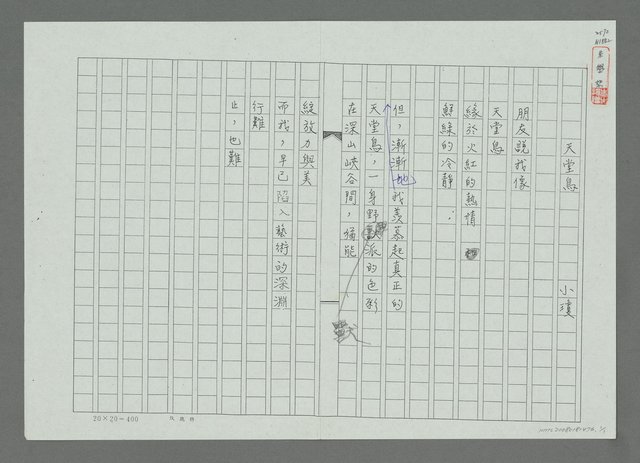 天堂鳥
小瓊
朋友說我像
天堂鳥
緣於火紅的熱情
鮮綠的冷靜…
但，漸漸地我羨慕起真正的
天堂鳥，一身野獸派的色彩
在深山峽谷間，猶能
綻放力與美
而我，早已陷入藝術的深淵
行難
止，也難
20×20=400